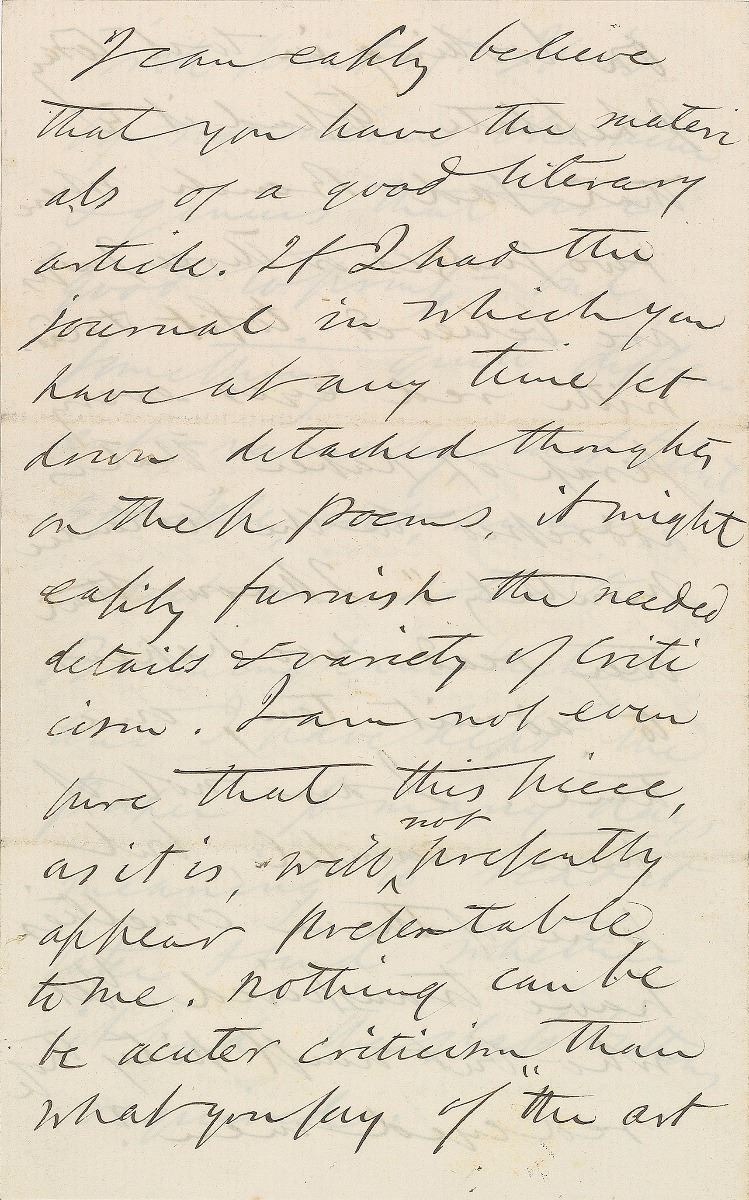 I can easily believe
that you have the materi
als of a good literary
article. If I had the
journal in which you
have at any time set
down detached thoughts
on these poems, it might
easily furnish the needed
details & variety of criti
cism. I am not even
sure that this piece,
not
as it is, will ^ presently
appear presentable
to me. nothing can be
be acuter criticism than
what you say of "the art